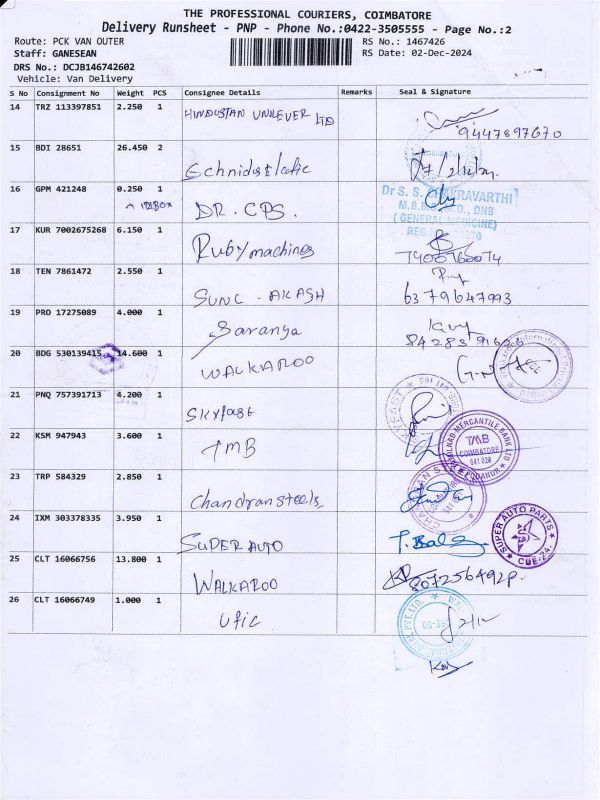 THE PROFESSIONAL COURIERS, COIMBATORE
Delivery Runsheet - PNP - Phone No.:0422-3505555 - Page No.:2
Route: PCK VAN OUTER
RS No.: 1467426
Staff: GANESEAN
RS Date: 02-Dec-2024
DRS No.: DCJB146742602
Vehicle: Van Delivery
S No Consignment No Weight PCS Consignee Details Remarks Seal & Signature
14 TRZ 113397851 2.250 1 HINDUSTAN UNILEVER LTD
9447897670
15 BDI 28651 26.450 2
16 GPM 421248 0.250 1 DR. CPS.
Dr S. S. CHAKRAVARTHI
M.B.B.S., M.D., DNB
(GENERAL MEDICINE)
17 KUR 7002675268 6.150 1 Ruby machines
7400760074
18 TEN 7861472 2.550 1 SUNC - AKASH
6379647993
19 PRO 17275089 4.000 1 Saranya
20 BDG 530139415 14.600 1 WALKAROO
21 PNQ 757391713 4.200 1 SKYFAST
22 KSM 947943 3.600 1 TMB
TAMILNAD MERCANTILE BANK LTD
TMB
COIMBATORE
641 023
PODANUR
23 TRP 584329 2.850 1 Chandran steels
24 IXM 303378335 3.950 1 SUPER AUTO
SUPER AUTO PARTS
CBE-24
25 CLT 16066756 13.800 1 WALKAROO
26 CLT 16066749 1.000 1